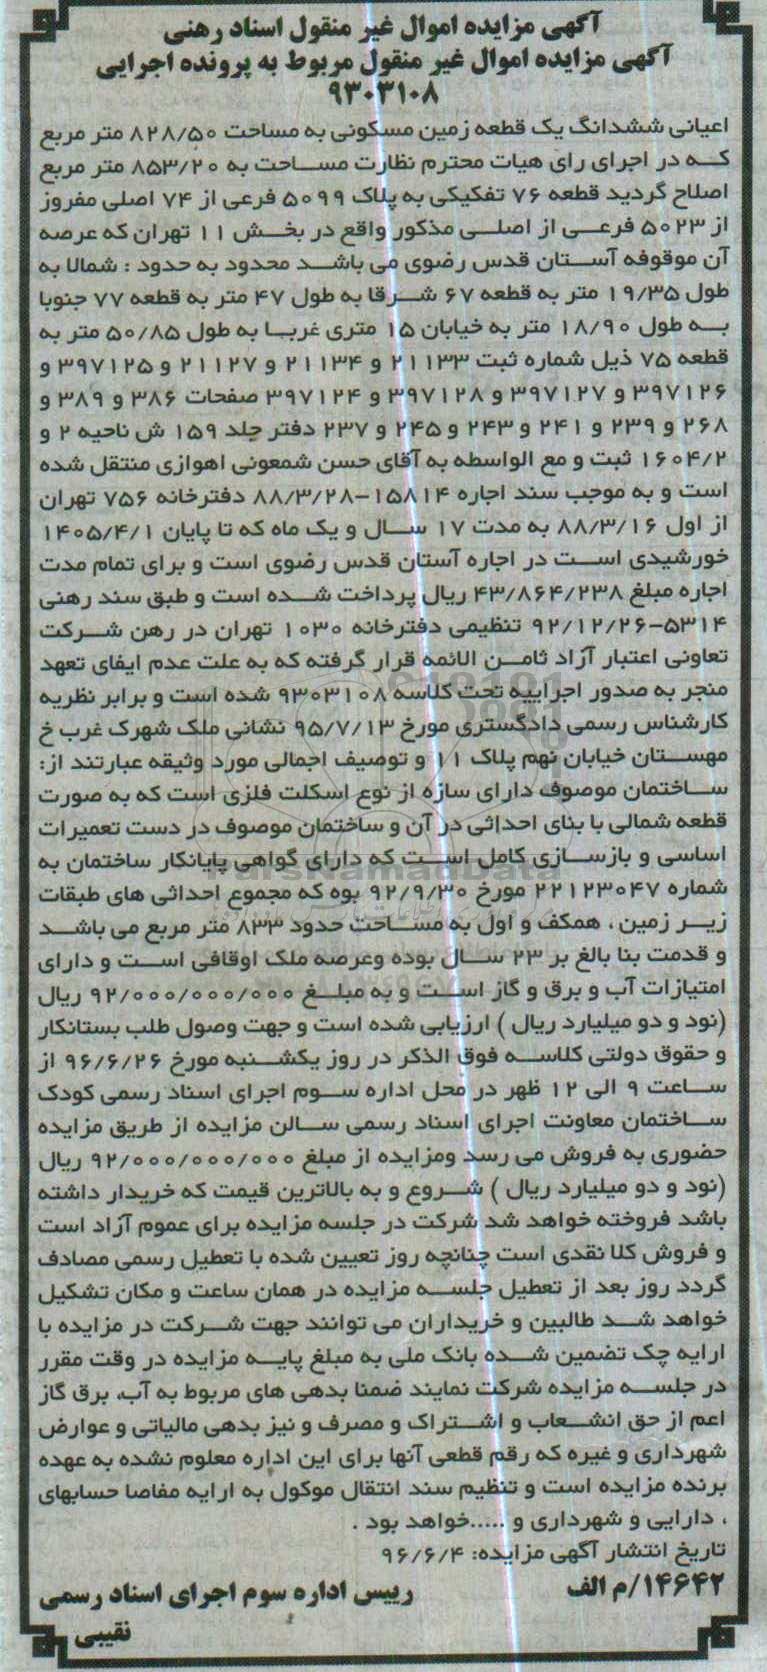 آگهی مزایده اموال غیر منقول اسناد رهنی
آگهی مزایده اموال غیر منقول مربوط به پرونده اجرایی
۹۳۰۳۱۰۸
اعیانی ششدانگ یک قطعه زمین مسکونی به مساحت ۸۲۸/۵۰ متر مربع
که در اجرای رای هیات محترم نظارت مساحت به ۸۵۳/۲۰ متر مربع
اصلاح گردید قطعه ۷۶ تفکیکی به پلاک ۵۰۹۹ فرعی از ۷۴ اصلی مفروز
از ۵۰۲۳ فرعی از اصلی مذکور واقع در بخش ۱۱ تهران که عرصه
آن موقوفه آستان قدس رضوی می باشد محدود به حدود : شمالا به
طول ۱۹/۳۵ متر به قطعه ۶۷ شرقا به طول ۴۷ متر به قطعه ۷۷ جنوبا
به طول ۱۸/۹۰ متر به خیابان ۱۵ متری غربا به طول ۵۰/۸۵ متر به
قطعه ۷۵ ذیل شماره ثبت ۲۱۱۳۳ و ۲۱۱۳۴ و ۲۱۱۲۷ و ۳۹۷۱۲۵ و
۳۹۷۱۲۶ و ۳۹۷۱۲۷ و ۳۹۷۱۲۸ و ۳۹۷۱۲۴ صفحات ۳۸۶ و ۳۸۹ و
۲۶۸ و ۲۳۹ و ۲۴۱ و ۲۴۳ و ۲۴۵ و ۲۳۷ دفتر جلد ۱۵۹ ش ناحیه ۲ و
۱۶۰۴/۲ ثبت و مع الواسطه به آقای حسن شمعونی اهوازی منتقل شده
است و به موجب سند اجاره ۱۵۸۱۴-۸۸/۳/۲۸ دفترخانه ۷۵۶ تهران
از اول ۸۸/۳/۱۶ به مدت ۱۷ سال و یک ماه که تا پایان ۱۴۰۵/۴/۱
خورشیدی است در اجاره آستان قدس رضوی است و برای تمام مدت
اجاره مبلغ ۴۳/۸۶۴/۲۳۸ ریال پرداخت شده است و طبق سند رهنی
۵۳۱۴-۹۲/۱۲/۲۶ تنظیمی دفترخانه ۱۰۳۰ تهران در رهن شرکت
تعاونی اعتبار آزاد ثامن الائمه قرار گرفته که به علت عدم ایفای تعهد
منجر به صدور اجراییه تحت کلاسه ۹۳۰۳۱۰۸ شده است و برابر نظریه
کارشناس رسمی دادگستری مورخ ۹۵/۷/۱۳ نشانی ملک شهرک غرب خ
مهستان خیابان نهم پلاک ۱۱ و توصیف اجمالی مورد وثیقه عبارتند از:
ساختمان موصوف دارای سازه از نوع اسکلت فلزی است که به صورت
قطعه شمالی با بنای احداثی در آن و ساختمان موصوف در دست تعمیرات
اساسی و بازسازی کامل است که دارای گواهی پایانکار ساختمان به
شماره ۲۲۱۲۳۰۴۷ مورخ ۹۲/۹/۳۰ بوه که مجموع احداثی های طبقات
زیر زمین ، همکف و اول به مساحت حدود ۸۳۳ متر مربع می باشد
و قدمت بنا بالغ بر ۲۳ سال بوده وعرصه ملک اوقافی است و دارای
امتیازات آب و برق و گاز است و به مبلغ ۹۲/۰۰۰/۰۰۰/۰۰۰ ریال
(نود و دو میلیارد ریال ) ارزیابی شده است و جهت وصول طلب بستانکار
و حقوق دولتی کلاسه فوق الذکر در روز یکشنبه مورخ ۹۶/۶/۲۶ از
ساعت ۹ الی ۱۲ ظهر در محل اداره سوم اجرای اسناد رسمی کودک
ساختمان معاونت اجرای اسناد رسمی سالن مزایده از طریق مزایده
حضوری به فروش می رسد ومزایده از مبلغ ۹۲/۰۰۰/۰۰۰/۰۰۰ ریال
(نود و دو میلیارد ریال ) شروع و به بالاترین قیمت که خریدار داشته
باشد فروخته خواهد شد شرکت در جلسه مزایده برای عموم آزاد است
و فروش کلا نقدی است چنانچه روز تعیین شده با تعطیل رسمی مصادف
گردد روز بعد از تعطیل جلسه مزایده در همان ساعت و مکان تشکیل
خواهد شد طالبین و خریداران می توانند جهت شرکت در مزایده با
ارایه چک تضمین شده بانک ملی به مبلغ پایه مزایده در وقت مقرر
در جلسه مزایده شرکت نمایند ضمنا بدهی های مربوط به آب، برق گاز
اعم از حق انشعاب و اشتراک و مصرف و نیز بدهی مالیاتی و عوارض
شهرداری و غیره که رقم قطعی آنها برای این اداره معلوم نشده به عهده
برنده مزایده است و تنظیم سند انتقال موکول به ارایه مفاصا حسابهای
، دارایی و شهرداری و .....خواهد بود .
تاریخ انتشار آگهی مزایده: ۹۶/۶/۴
۱۴۶۴۲/م الف
رییس اداره سوم اجرای اسناد رسمی
نقیبی
ParsNamadData